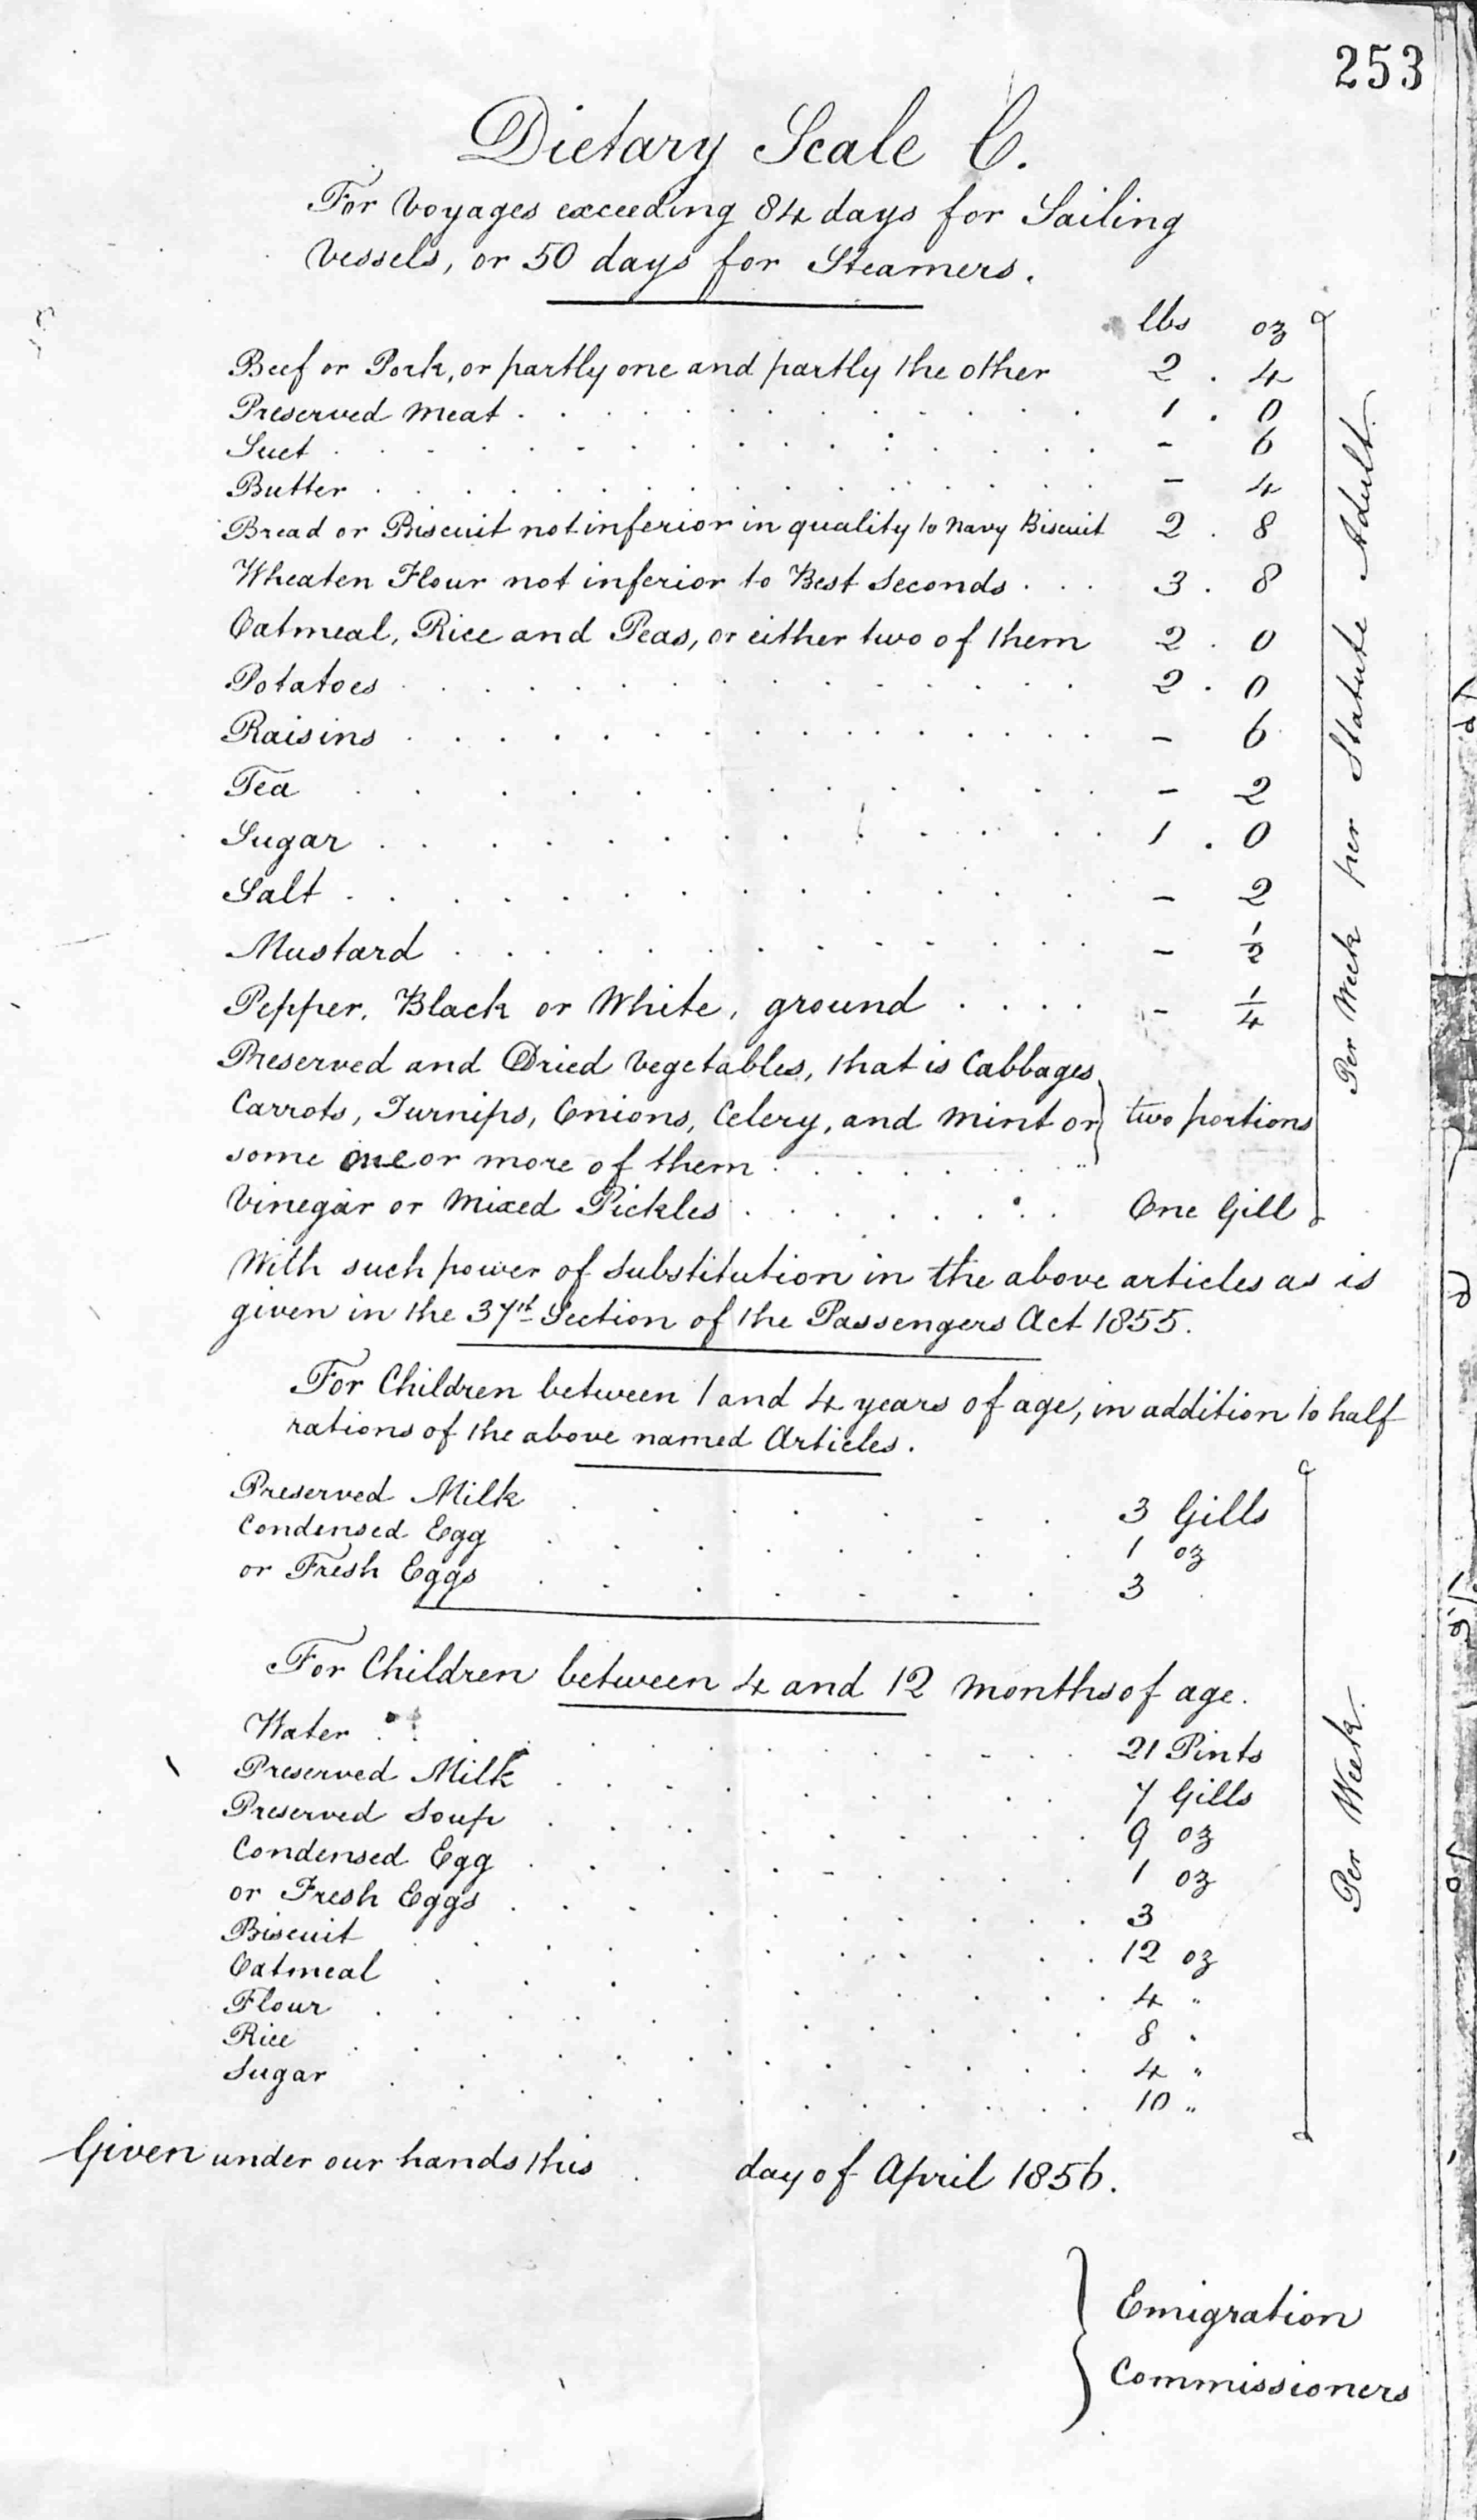 253
Dietary Scale C.
For Voyages exceeding 84 days for Sailing
Vessels, or 50 days for Steamers.
lbs oz
Beef or Pork, or partly one and partly the other 2 . 4
Preserved Meat . . . . . . . . . . . . 1 . 0
Suet . . . . . . . . . . . . . . . - 6
Butter . . . . . . . . . . . . . . - 4
Bread or Biscuit not inferior in quality to Navy Biscuit 2 . 8
Wheaten Flour not inferior to Best Seconds . . . 3 . 8
Oatmeal, Rice and Peas, or either two of them 2 . 0
Potatoes . . . . . . . . . . . . . 2 . 0
Raisins . . . . . . . . . . . . . . - 6
Tea . . . . . . . . . . . . . - 2
Sugar . . . . . . . . . . . . . 1 . 0
Salt . . . . . . . . . . . . . - 2
Mustard . . . . . . . . . . . . - ½
Pepper, Black or White, ground . . . . - ¼
Preserved and Dried Vegetables, that is Cabbages
Carrots, Turnips, Onions, Celery, and Mint or two portions
some one or more of them . . . . . . .
Vinegar or Mixed Pickles . . . . . . . One Gill
Per Week per Statute Adult.
With such power of substitution in the above articles as is
given in the 37th Section of the Passengers Act 1855.
For Children between 1 and 4 years of age, in addition to half
rations of the above named Articles.
Preserved Milk . . . . . . . . 3 Gills
Condensed Egg . . . . . . . . 1 oz
or Fresh Eggs . . . . . . . . 3
For Children between 4 and 12 months of age.
Water . . . . . . . . . . . 21 Pints
Preserved Milk . . . . . . . . . 7 Gills
Preserved Soup . . . . . . . . . 9 oz
Condensed Egg . . . . . . . . . 1 oz
or Fresh Eggs . . . . . . . . . 3
Biscuit . . . . . . . . . . 12 oz
Oatmeal . . . . . . . . . 4 "
Flour . . . . . . . . . . 8 "
Rice . . . . . . . . . . 4 "
Sugar . . . . . . . . . . 10 "
Per Week.
Given under our hands this day of April 1856.
Emigration
Commissioners